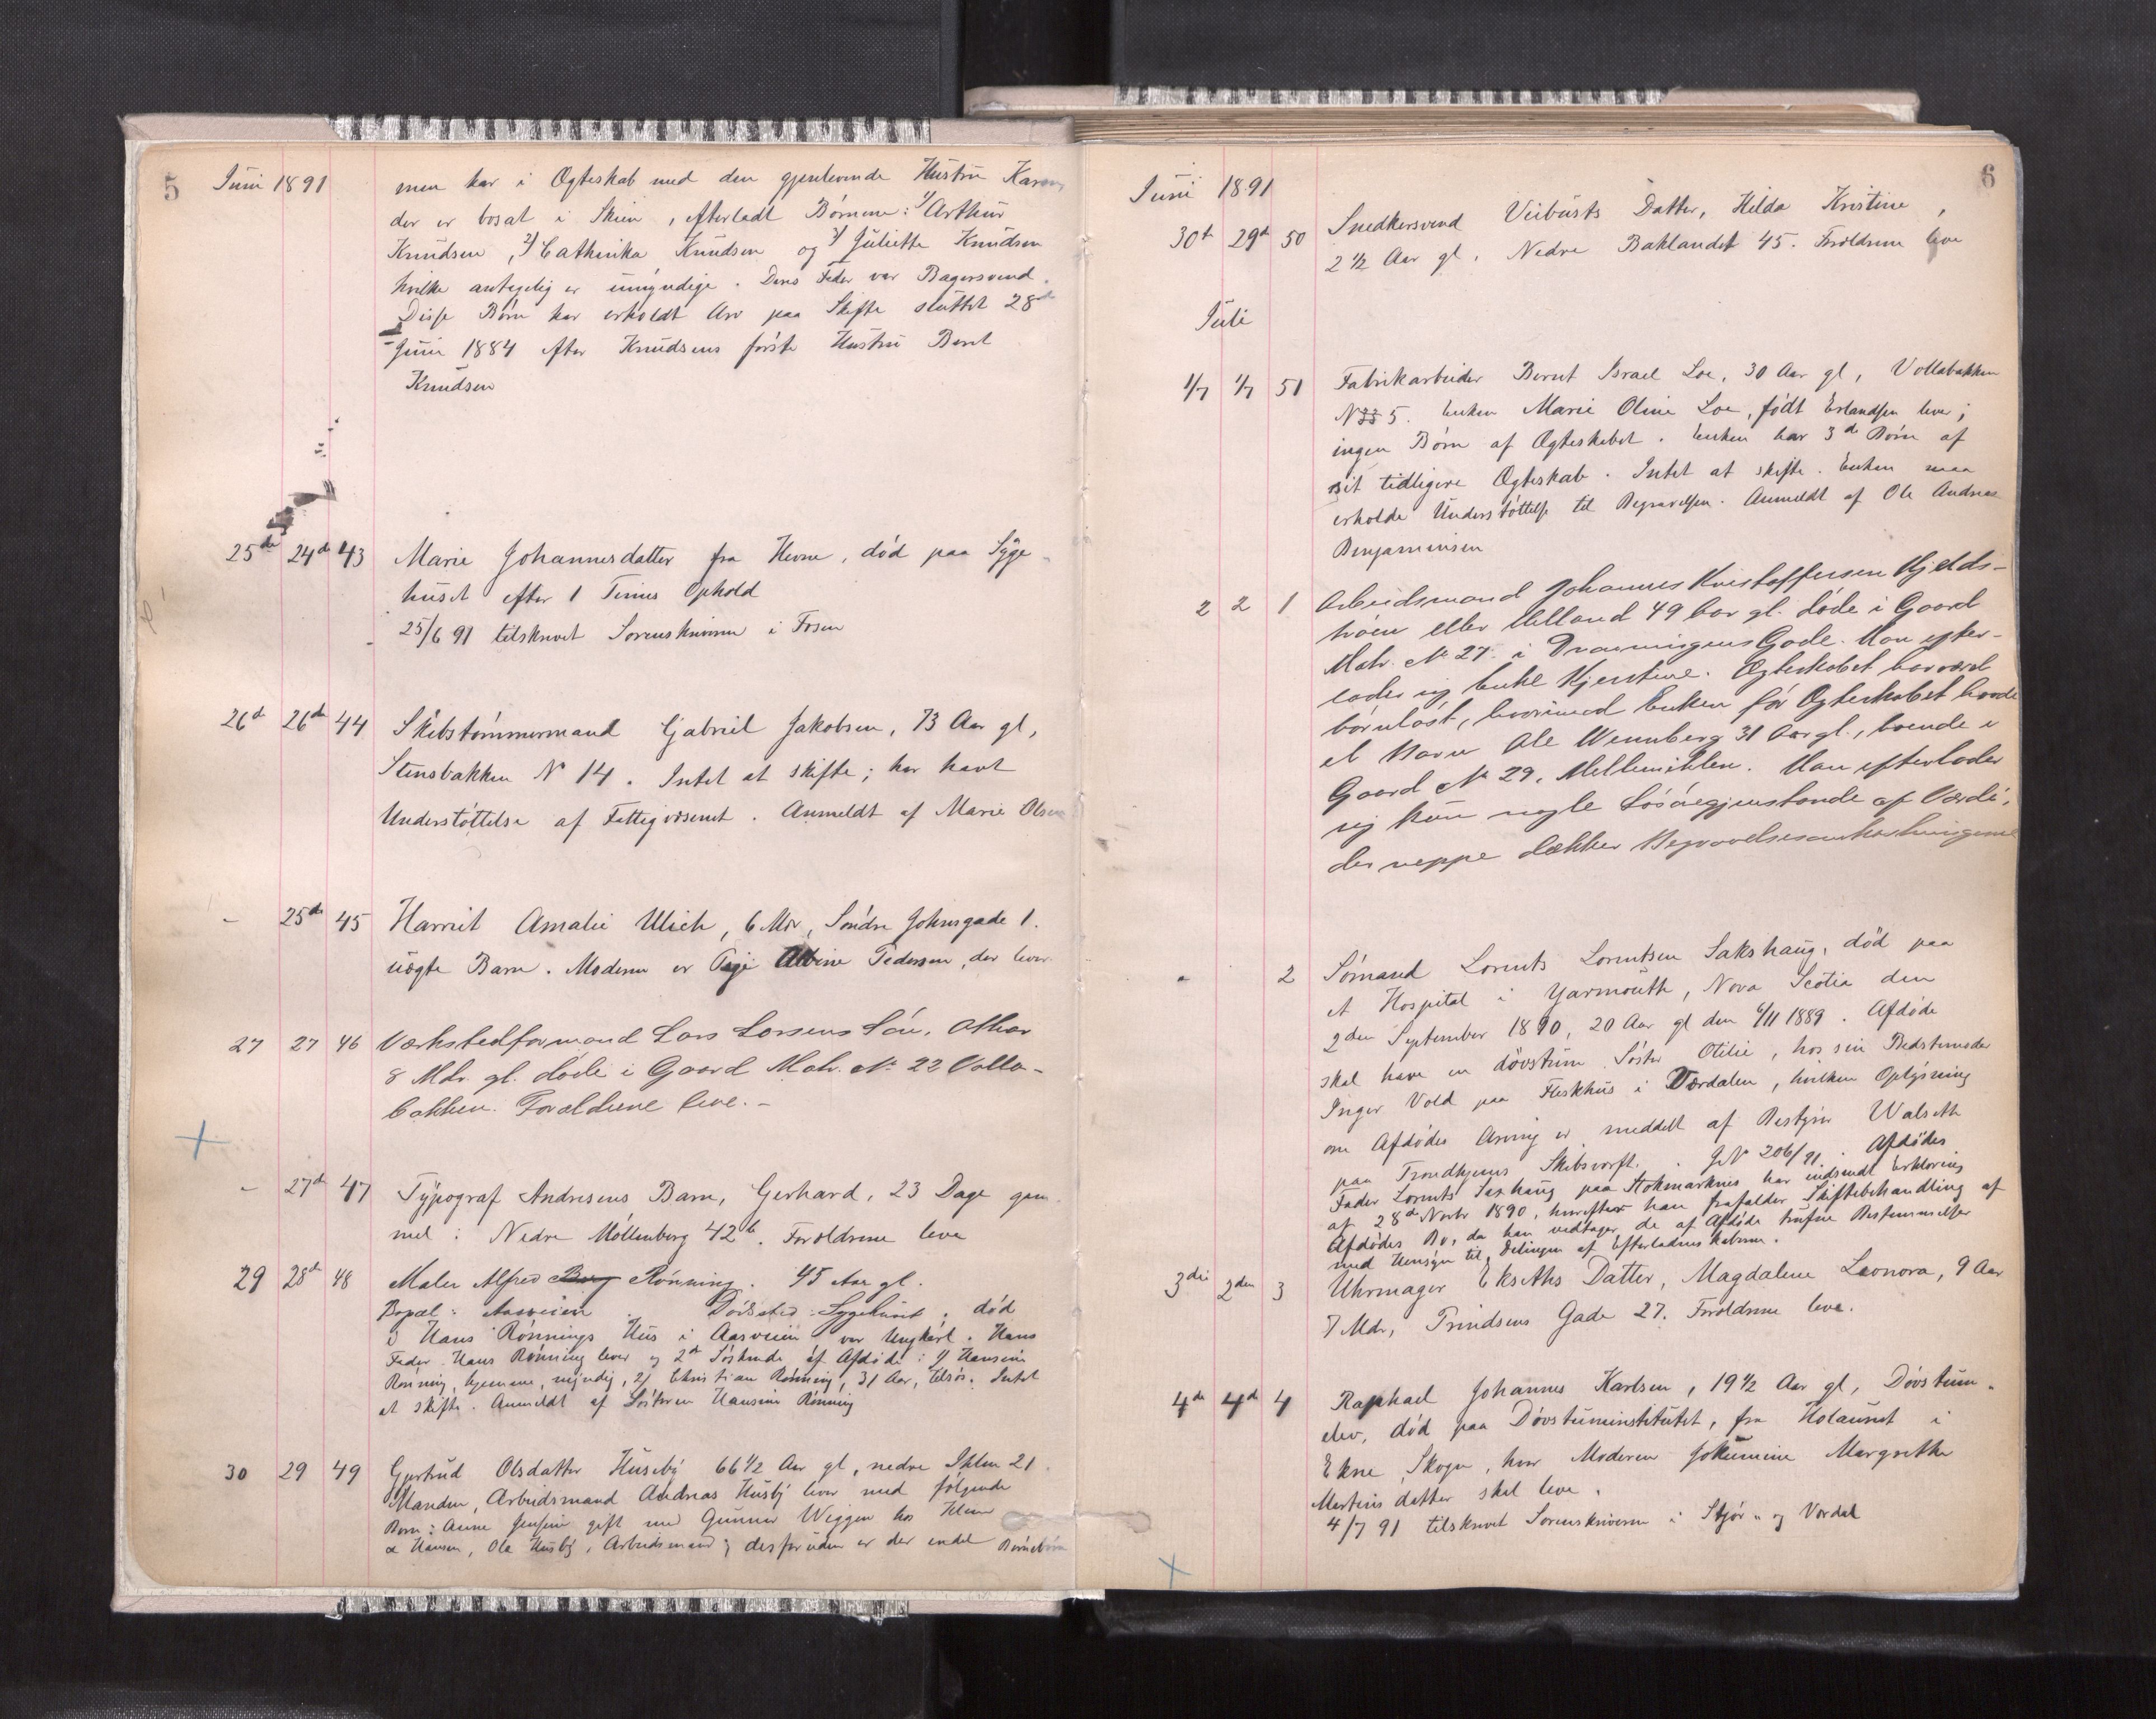 5 Juni 1891
men har i Ægteskab med den gjenlevende Hustru Karen
der er bosat i Skien, efterladt Børnene: 1) Arthur
Knudsen, 2) Cathinka Knudsen og 3) Juliette Knudsen
hvilke antagelig er umyndige. Dens Fader var Bagersvend.
Disse Børn har erholdt Arv paa Skifte sluttet 28de
Juni 1884 efter Knudsens første Hustru Beret
Knudsen
25de 24de 43 Marie Johannesdatter fra Hevne, død paa Syge-
huset efter 1 Times Ophold
25/6 91 tilskrevet Sorenskriveren i Fosen
26de 26de 44 Skibstømmermand Gabriel Jakobsen, 73 Aar gl,
Stensbakken No 14. Intet at skifte; har havt
Understøttelse af Fattigvæsenet. Anmeldt af Marie Olsen
- 25de 45 Harriet Amalie Ulich, 6 Mdr, Søndre Johnsgade 1.
uægte Barn. Moderen er Pige Albine Pedersen, der lever
27 27 46 Værkstedformand Lars Larsens Søn, Othar
8 Mdr. gl. døde i Gaard Matr. No 22 Volla-
bakken. Forældrene leve. -
- 27de 47 Typograf Andresens Barn, Gerhard, 23 Dage gam-
mel: Nedre Møllenberg 42b. Forældrene leve
29 28de 48 Maler Alfred Berg Rønning. 45 Aar gl.
Bopæl: Aasveien. Dødssted: Sygehuset. død
i Hans Rønnings Hus i Aasveien var Ungkarl. Hans
Fader Hans Rønning lever og 2de Søskende af Afdøde: 1) Hansine
Rønning, hjemme, myndig, 2) Christian Rønning, 31 Aar, tilsøs. Intet
at skifte. Anmeldt af Søsteren Hansine Rønning
30 29 49 Gjertrud Olsdatter Huseby 66 1/2 Aar gl, nedre Ihlen 21.
Manden, Arbeidsmand Andreas Husby lever med følgende
Børn: Anne Jensine gift med Gunnar Wiggen hos Huitfeldt
& Hansen, Ole Husby, Arbeidsmand; desforuden er der endel Børnebørn
6
Juni 1891
30te 29de 50 Snedkersvend Veibusts Datter, Hilda Kristine,
2 1/2 Aar gl, Nedre Baklandet 45. Forældrene leve
Juli
1/7 1/7 51 Fabrikarbeider Bernt Israel Loe, 30 Aar gl, Vollabakken
N 33 5. Enken Marie Oline Loe, født Erlandsen lever;
ingen Børn af Ægteskabet. Enken har 3de Børn af
sit tidligere Ægteskab. Intet at skifte. Enken maa
erholde Understøttelse til Begravelsen. Anmeldt af Ole Andreas
Benjaminsen
2 2 1 Arbeidsmand Johannes Kristoffersen Kjelds-
høien eller Melland 49 Aar gl. døde i Gaard
Matr. No 27 i Dronningens Gade. Han efter-
lader sig Enke Kjerstine. Ægteskabet har været
børnløst, hvorimod Enken før Ægteskabet havde
et Barn Ole Wennberg 31 Aar gl., boende i
Gaard No 29, Mellemihlen. Han efterlader
sig kun nogle Løsøregjenstande af Værdi,
der neppe dækker Begravelsesomkostningerne
- 2 Sømand Lorents Lorentsen Sakshaug, død paa
et Hospital i Yarmouth, Nova Scotia den
2den September 1890, 20 Aar gl den 6/11 1889. Afdøde
skal have en døvstum Søster Otilie, hos sin Bedstemoder
Inger Vold paa Fleskhus i Værdalen, hvilken Oplysning
om Afdødes Arving er meddelt af Bestyrer Walseth
paa Trondhjems Skibsværft. J.No 206/91. Afdødes
Fader Lorents Saxhaug paa Stokmarknes har indsendt Erklæring
af 28de Novbr 1890, hvorefter han frafalder Skiftebehandling af
Afdødes Bo, da han vedtager de af Afdøde trufne Bestemmelser
med Hensyn til Delingen af Efterladenskaberne.
3die 2den 3 Uhrmager Ekseths Datter, Magdalene Leonora, 9 Aar
7 Mdr, Prindsens Gade 27. Forældrene leve.
4de 4de 4 Raphael Johannes Karlsen, 19 1/2 Aar gl, Døvstum-
elev, død paa Døvstuminstitutet, fra Holaunet i
Ekne, Skogn, hvor Moderen Jokumine Margrethe
Martinsdatter skal leve.
4/7 91 tilskrevet Sorenskriveren i Stjør- og Værdal